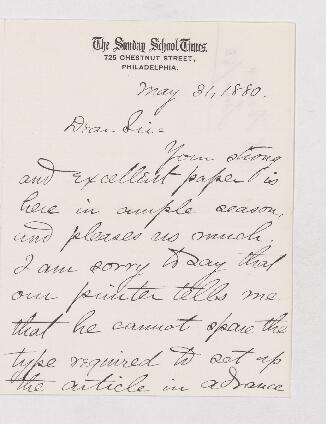 The Sunday School Times.
725 CHESTNUT STREET,
PHILADELPHIA.
May 31, 1880.
Dear Sir:
Your strong
and excellent paper is
here in ample season,
and pleases us much.
I am sorry to say that
our printer tells me
that he cannot spare the
type required to set up
the article in advance